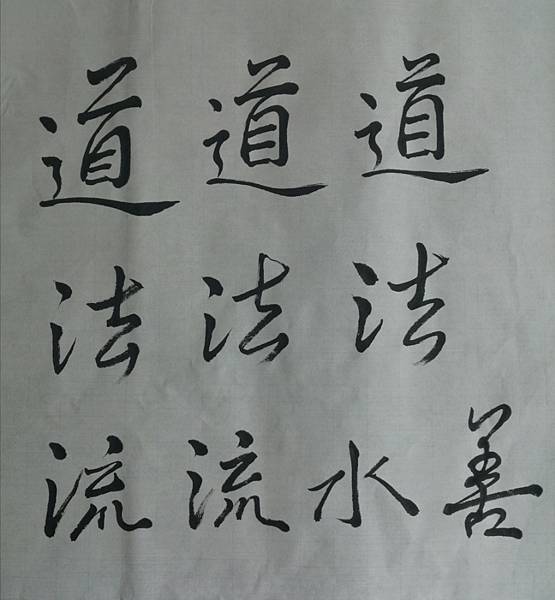 道道道
法法法
流流水善